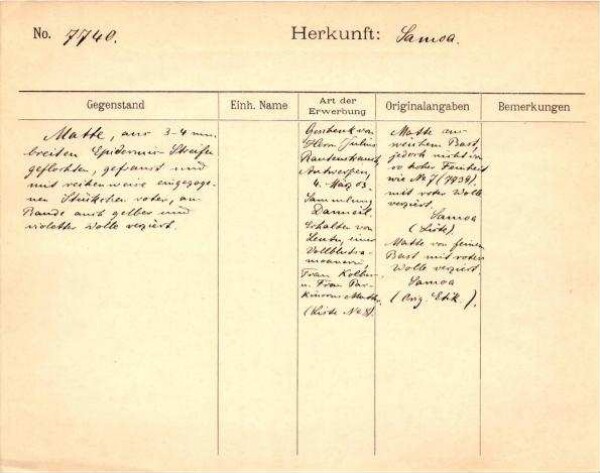 No. 7740.
Herkunft: Samoa.
Gegenstand
Einh. Name
Art der
Erwerbung
Originalangaben
Bemerkungen
Matte, aus 3-4 mm.
breiten Epidermis-Streifen
geflochten, gefranst und
mit reihenweise eingezoge-
nen Stückchen roter, am
Rande auch gelber und
violetter Wolle verziert.
Geschenk von
Herrn Julius
Rautenstrauch,
Antwerpen,
4. März 03.
Sammlung
Danneil.
Erhalten von
einer
Vollblutsa-
moanerin,
Frau Kolbe
u. Frau Par-
kinsons Mutter
(Liste No 8).
Matte aus
weichem Bast,
jedoch nicht von
so hoher Feinheit
wie No 7 (7739),
mit roter Wolle
verziert.
Samoa
(Liste).
Matte von feinem
Bast mit roter
Wolle verziert.
Samoa
(Orig. Etik.).